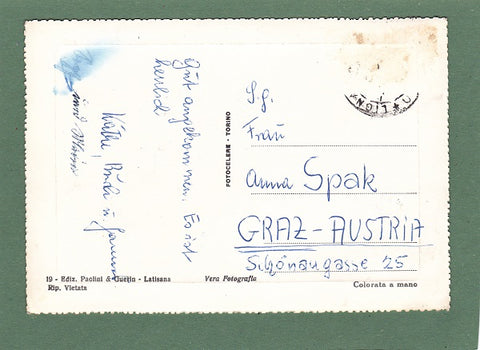 Gut angekommen. Es ist
herrlich
Käthe, Rudi u.
und
FOTOCELERE - TORINO
Sg.
Frau
Anna Spak
GRAZ-AUSTRIA
Schönaugasse 25
19 - Ediz. Paolini & Guerin - Latisana
Rip. Vietata
Vera Fotografia
Colorata a mano